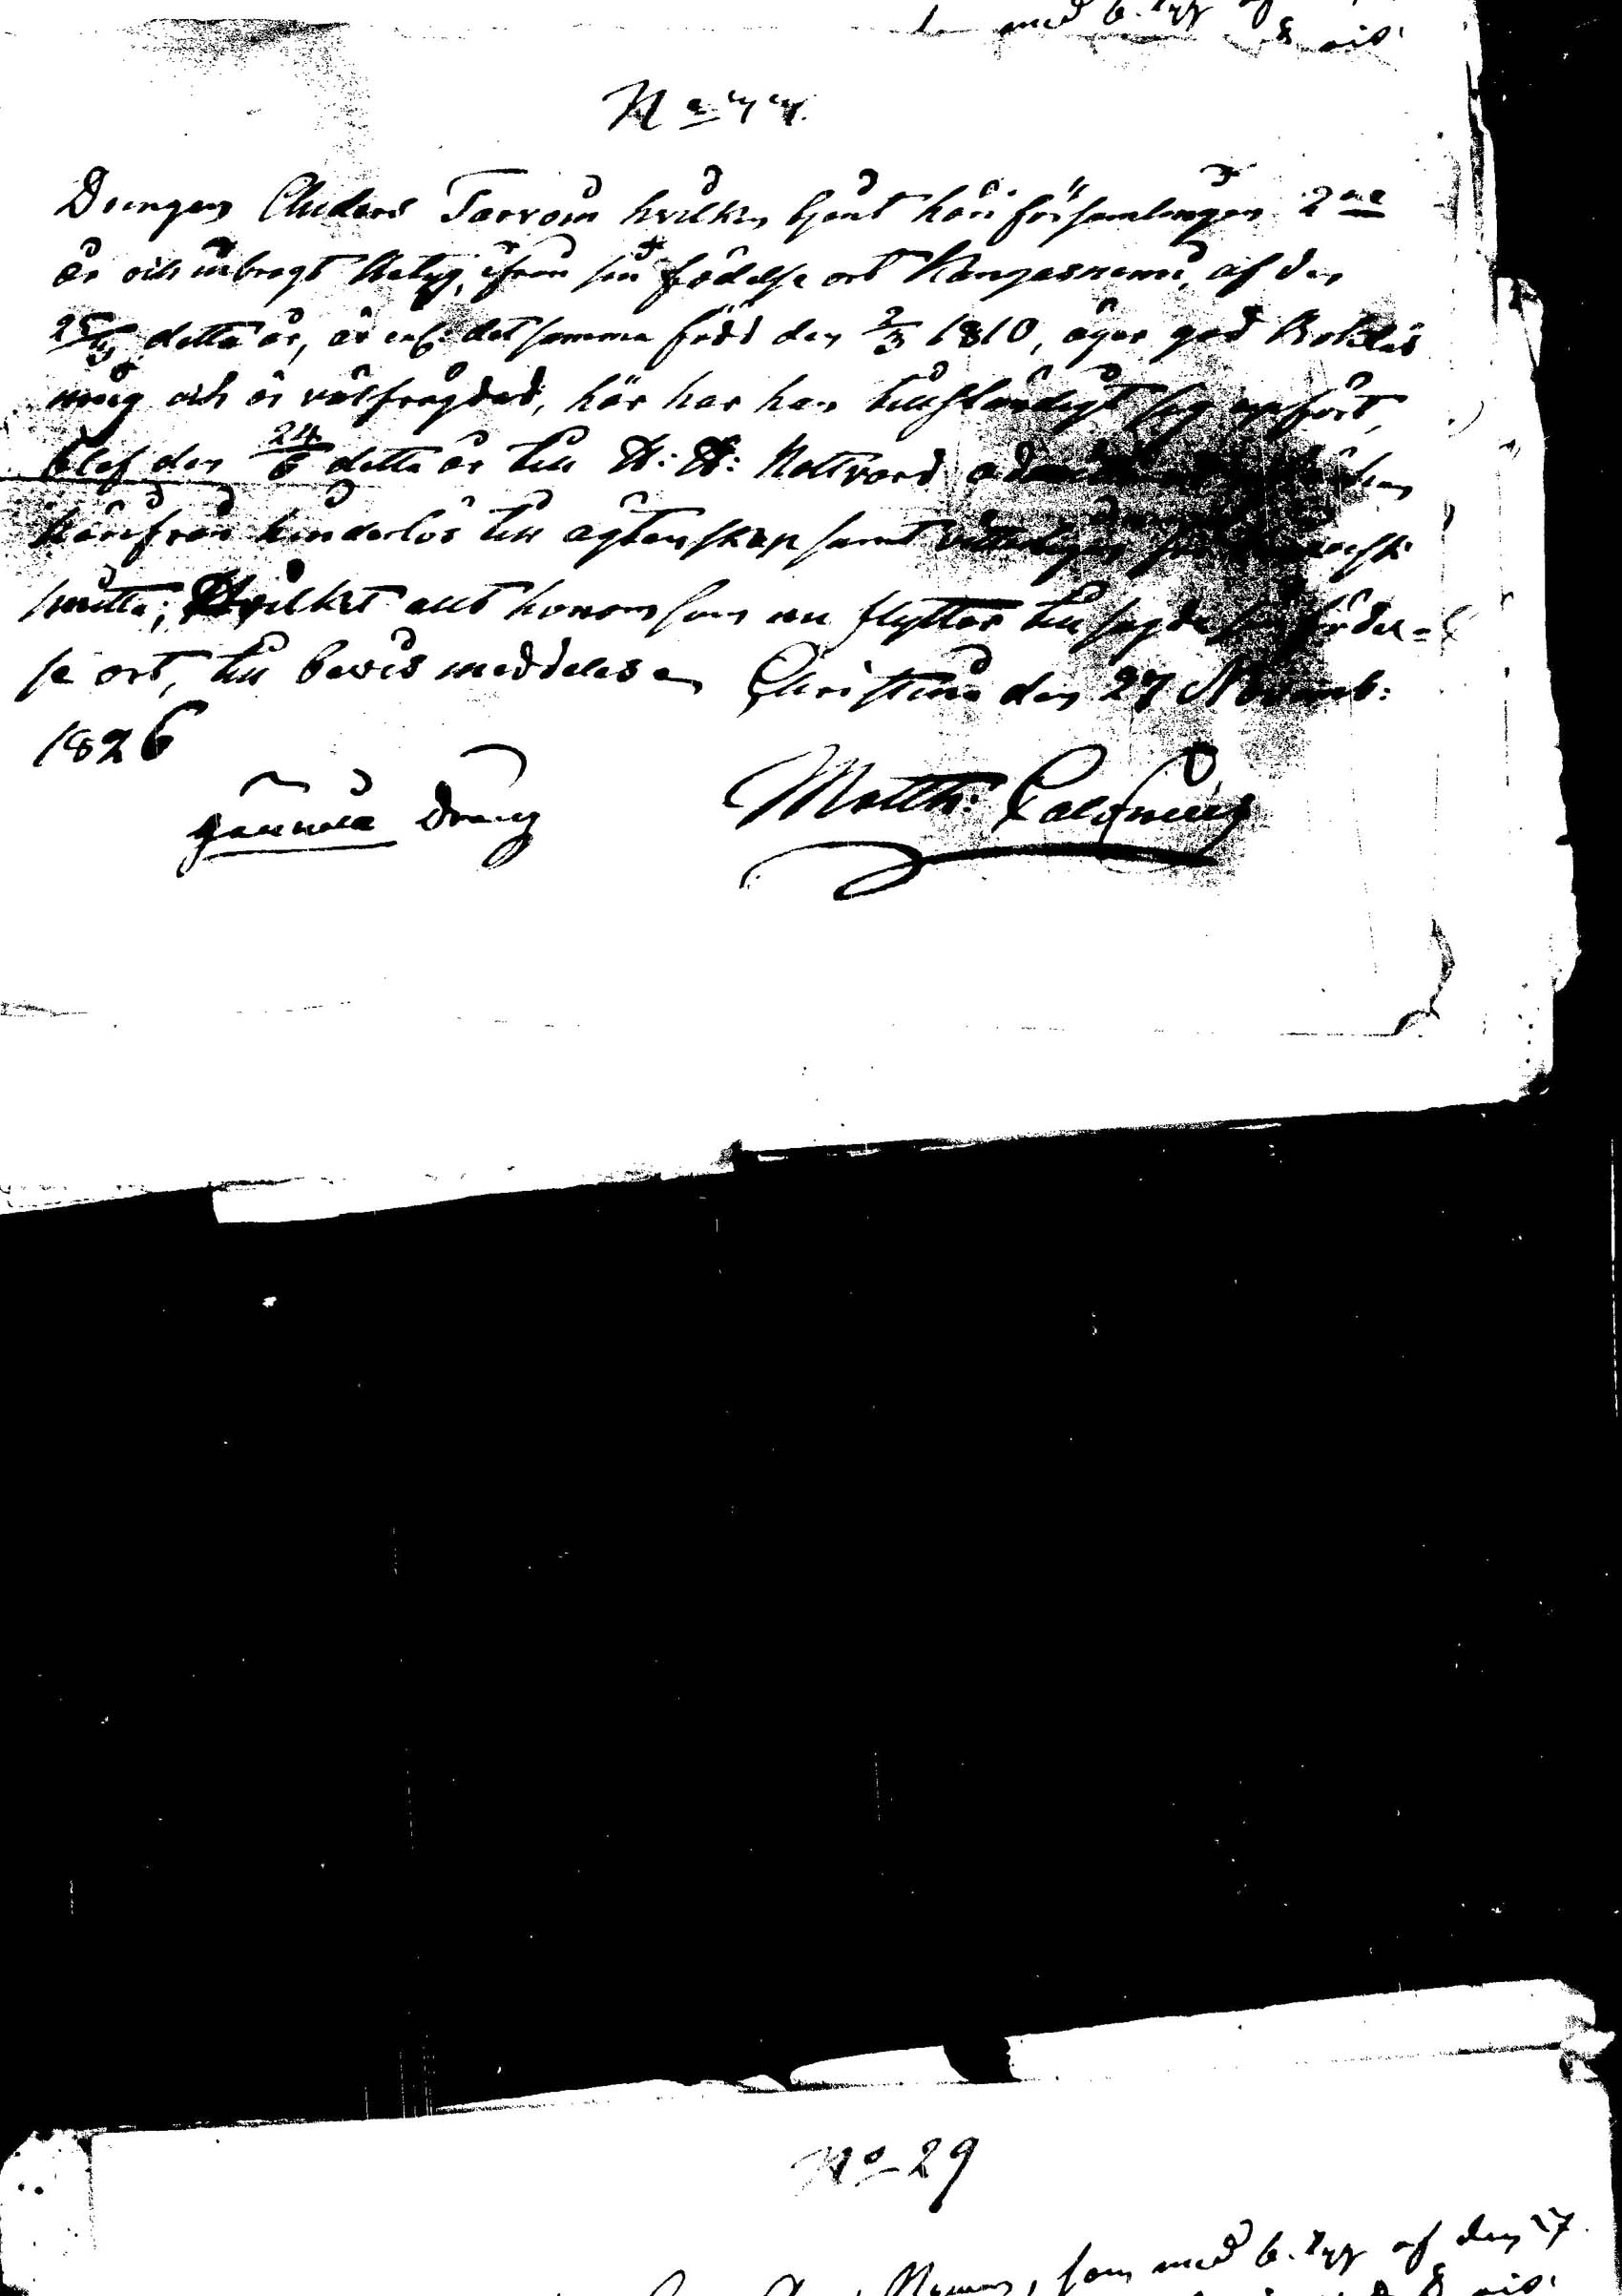 med b.tyg
8
No 44.
Drengen Anders Tarvain hvilken tjent här i församlingen 2ne
år och inbragt Betyg, ifrån sin födelse ort Kangasnemi, af den
detta år, är enl: det samma född den 2/3 1810, äger god Bokläs
ning och är välfrägdad, här har han anständigt sig upfört,
blef den 24/6 detta år till H: H: Nattvard
härifrån hinderlös till ägtenskap samt
smitta; Hvilket allt honom som nu flyttar till sagde sin födel=
se ort, till bevis meddelas en Christina den 27 Novemb:
1826
gammal dräng Matth: Calonius
No 29
som med b.tyg af den 27